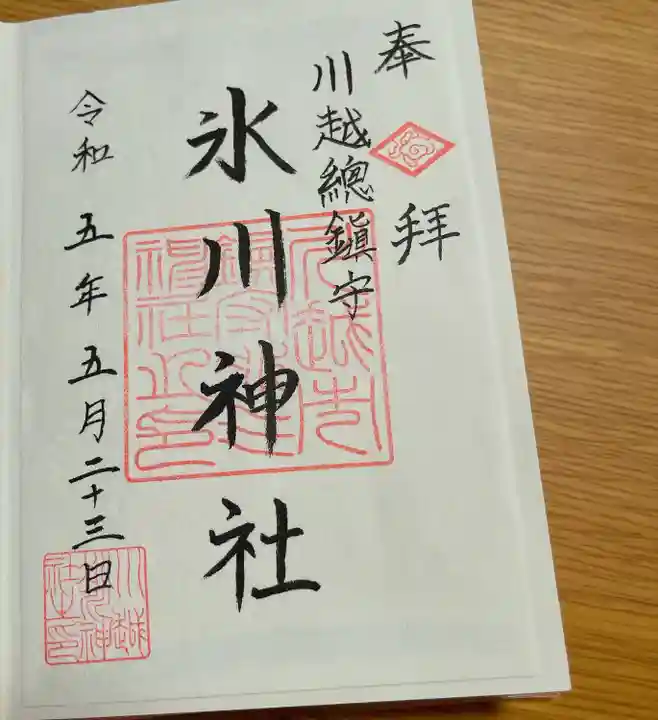 奉拝
川越總鎮守
氷川神社
令和五年五月二十三日
川越
氷川神
社之印